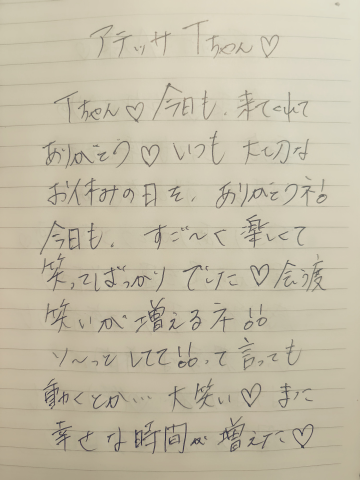 アテッサ Tちゃん♡
Tちゃん♡ 今日も、来てくれて
ありがとう♡ いつも 大切な
お休みの日を、ありがとうネ!!
今日も、すご〜く 楽しくて
笑ってばっかり でした♡ 会う度
笑いが 増えるネ!!
ソ〜っと してて!!って 言っても
動くとか… 大笑い♡ また
幸せな時間が 増えた♡